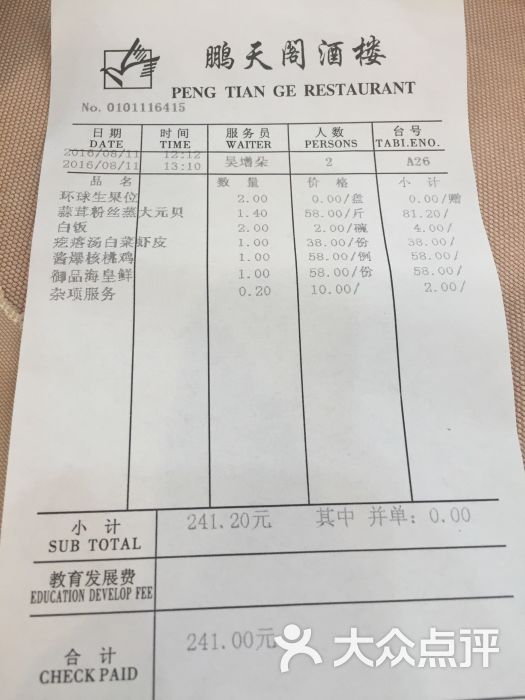 鹏天阁酒楼
PENG TIAN GE RESTAURANT
No. 0101116415
日期 时间 服务员 人数 台号
DATE TIME WAITER PERSONS TABLENO.
2016/08/11 12:12
2016/08/11 13:10 吴增朵 2 A26
品名 数量 价格 小计
环球生果位 2.00 0.00/盘 0.00/赠
蒜茸粉丝蒸大元贝 1.40 58.00/斤 81.20/
白饭 2.00 2.00/碗 4.00/
疙瘩汤白菜虾皮 1.00 38.00/份 38.00/
酱爆核桃鸡 1.00 58.00/例 58.00/
御品海皇鲜 1.00 58.00/份 58.00/
杂项服务 0.20 10.00/ 2.00/
小计 241.20元 其中 并单: 0.00
SUB TOTAL
教育发展费
EDUCATION DEVELOP FEE
合计 241.00元
CHECK PAID
大众点评